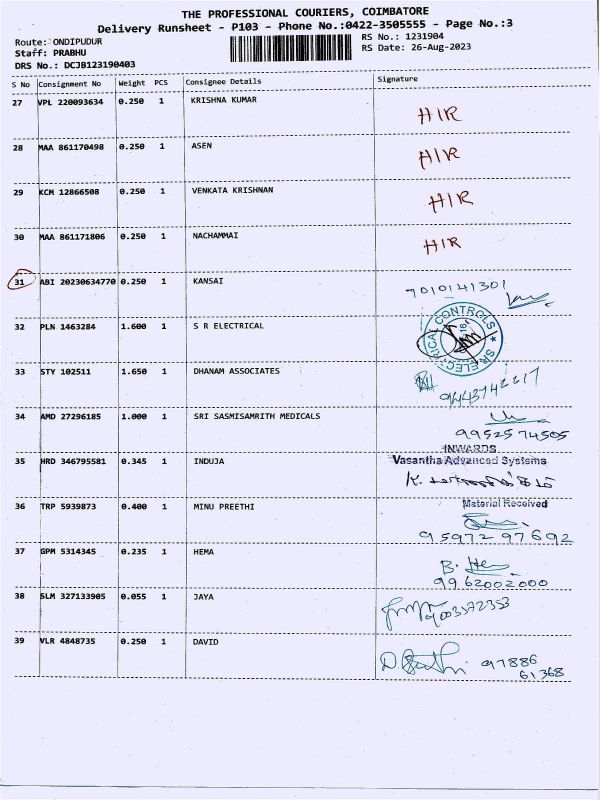 THE PROFESSIONAL COURIERS, COIMBATORE
Delivery Runsheet - P103 - Phone No.:0422-3505555 - Page No.:3
Route: ONDIPUDUR RS No.: 1231904
Staff: PRABHU RS Date: 26-Aug-2023
DRS No.: DCJB123190403
S No Consignment No Weight PCS Consignee Details Signature
27 VPL 220093634 0.250 1 KRISHNA KUMAR HIR
28 MAA 861170498 0.250 1 ASEN HIR
29 KCM 12866508 0.250 1 VENKATA KRISHNAN HIR
30 MAA 861171806 0.250 1 NACHAMMAI HIR
31 ABI 20230634770 0.250 1 KANSAI 7010141301
32 PLN 1463284 1.600 1 S R ELECTRICAL
SR ELECTRICAL CONTROLS
33 STY 102511 1.650 1 DHANAM ASSOCIATES 9443742217
34 AMD 27296185 1.000 1 SRI SASMISAMRITH MEDICALS
9952574505
INWARDS
35 HRD 346795581 0.345 1 INDUJA Vasantha Advanced Systems
Material Received
36 TRP 5939873 0.400 1 MINU PREETHI
9597297692
37 GPM 5314345 0.235 1 HEMA B. He
9962002000
38 SLM 327133905 0.055 1 JAYA 9003572353
39 VLR 4848735 0.250 1 DAVID 97886
61368